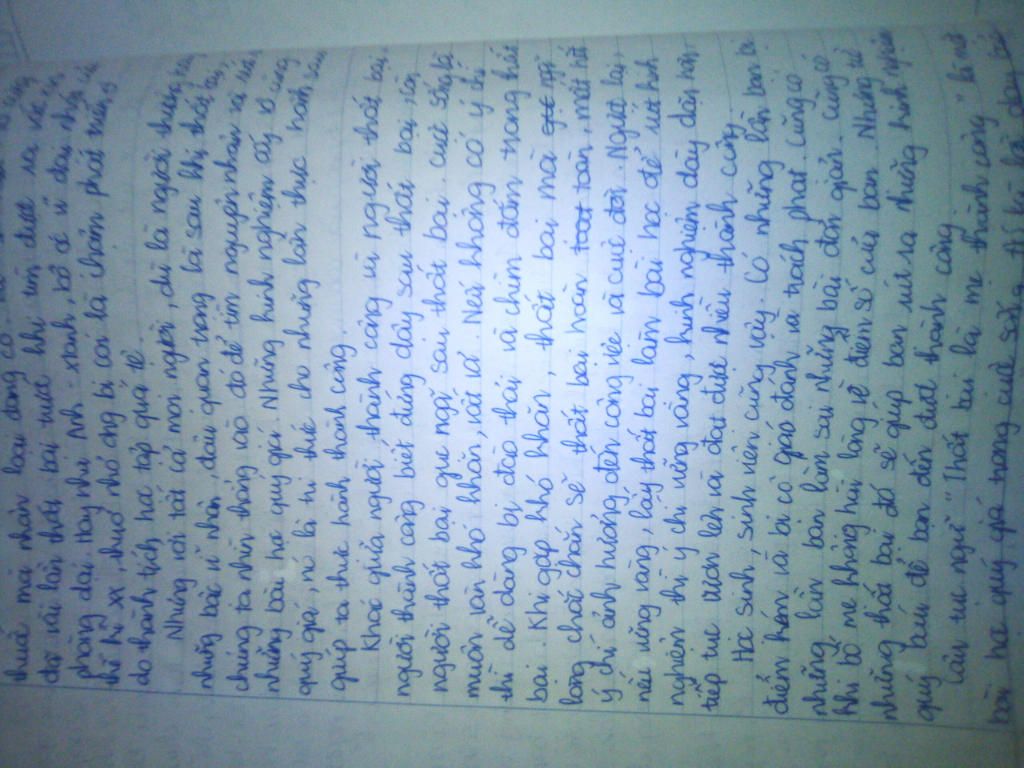 thuở mà nhân loại đang có
đợi vài lần thất bại trước khi tìm được ra
phóng dài. Hay như Anh-xtanh, bộ óc vĩ đại nhất của
thế kỉ XX, thuở nhỏ ông bị coi là chậm phát triển
do thành tích học tập quá tệ.
Nhưng với tất cả mọi người, dù là người thường hay
những bậc vĩ nhân, điều quan trọng là sau khi thất bại,
chúng ta nhìn thẳng vào đó để tìm nguyên nhân và rút
những bài học quý giá. Những kinh nghiệm ấy vô cùng
quý giá, nó là tri thức cho những lần thực hành sau
giúp ta thực hành thành công.
Khác giữa người thành công và người thất bại,
người thành công biết đứng dậy sau thất bại, còn
người thất bại gục ngã sau thất bại. Cuộc sống là
muôn vàn khó khăn, vất vả. Nếu không có ý chí
thì dễ dàng bị đào thải và chìm đắm trong thất
bại. Khi gặp khó khăn, thất bại mà ngã
lòng chắc chắn sẽ thất bại hoàn toàn, mất hết
ý chí ảnh hưởng đến công việc và cuộc đời. Ngược lại,
nếu vững vàng, lấy thất bại làm bài học để rút kinh
nghiệm thì ý chí vững vàng, kinh nghiệm dày dặn hơn,
tiếp tục vươn lên và đạt được nhiều thành công.
Học sinh, sinh viên cũng vậy. Có những lần bạn bị
điểm kém và bị cô giáo đánh và trách phạt, cũng có
những lần bạn làm sai những bài đơn giản, cũng có
khi bố mẹ không hài lòng về điểm số của bạn. Nhưng từ
những thất bại đó sẽ giúp bạn rút ra những kinh nghiệm
quý báu để bạn đến được thành công
Câu tục ngữ "Thất bại là mẹ thành công" là một
bài học quý giá trong cuộc sống.